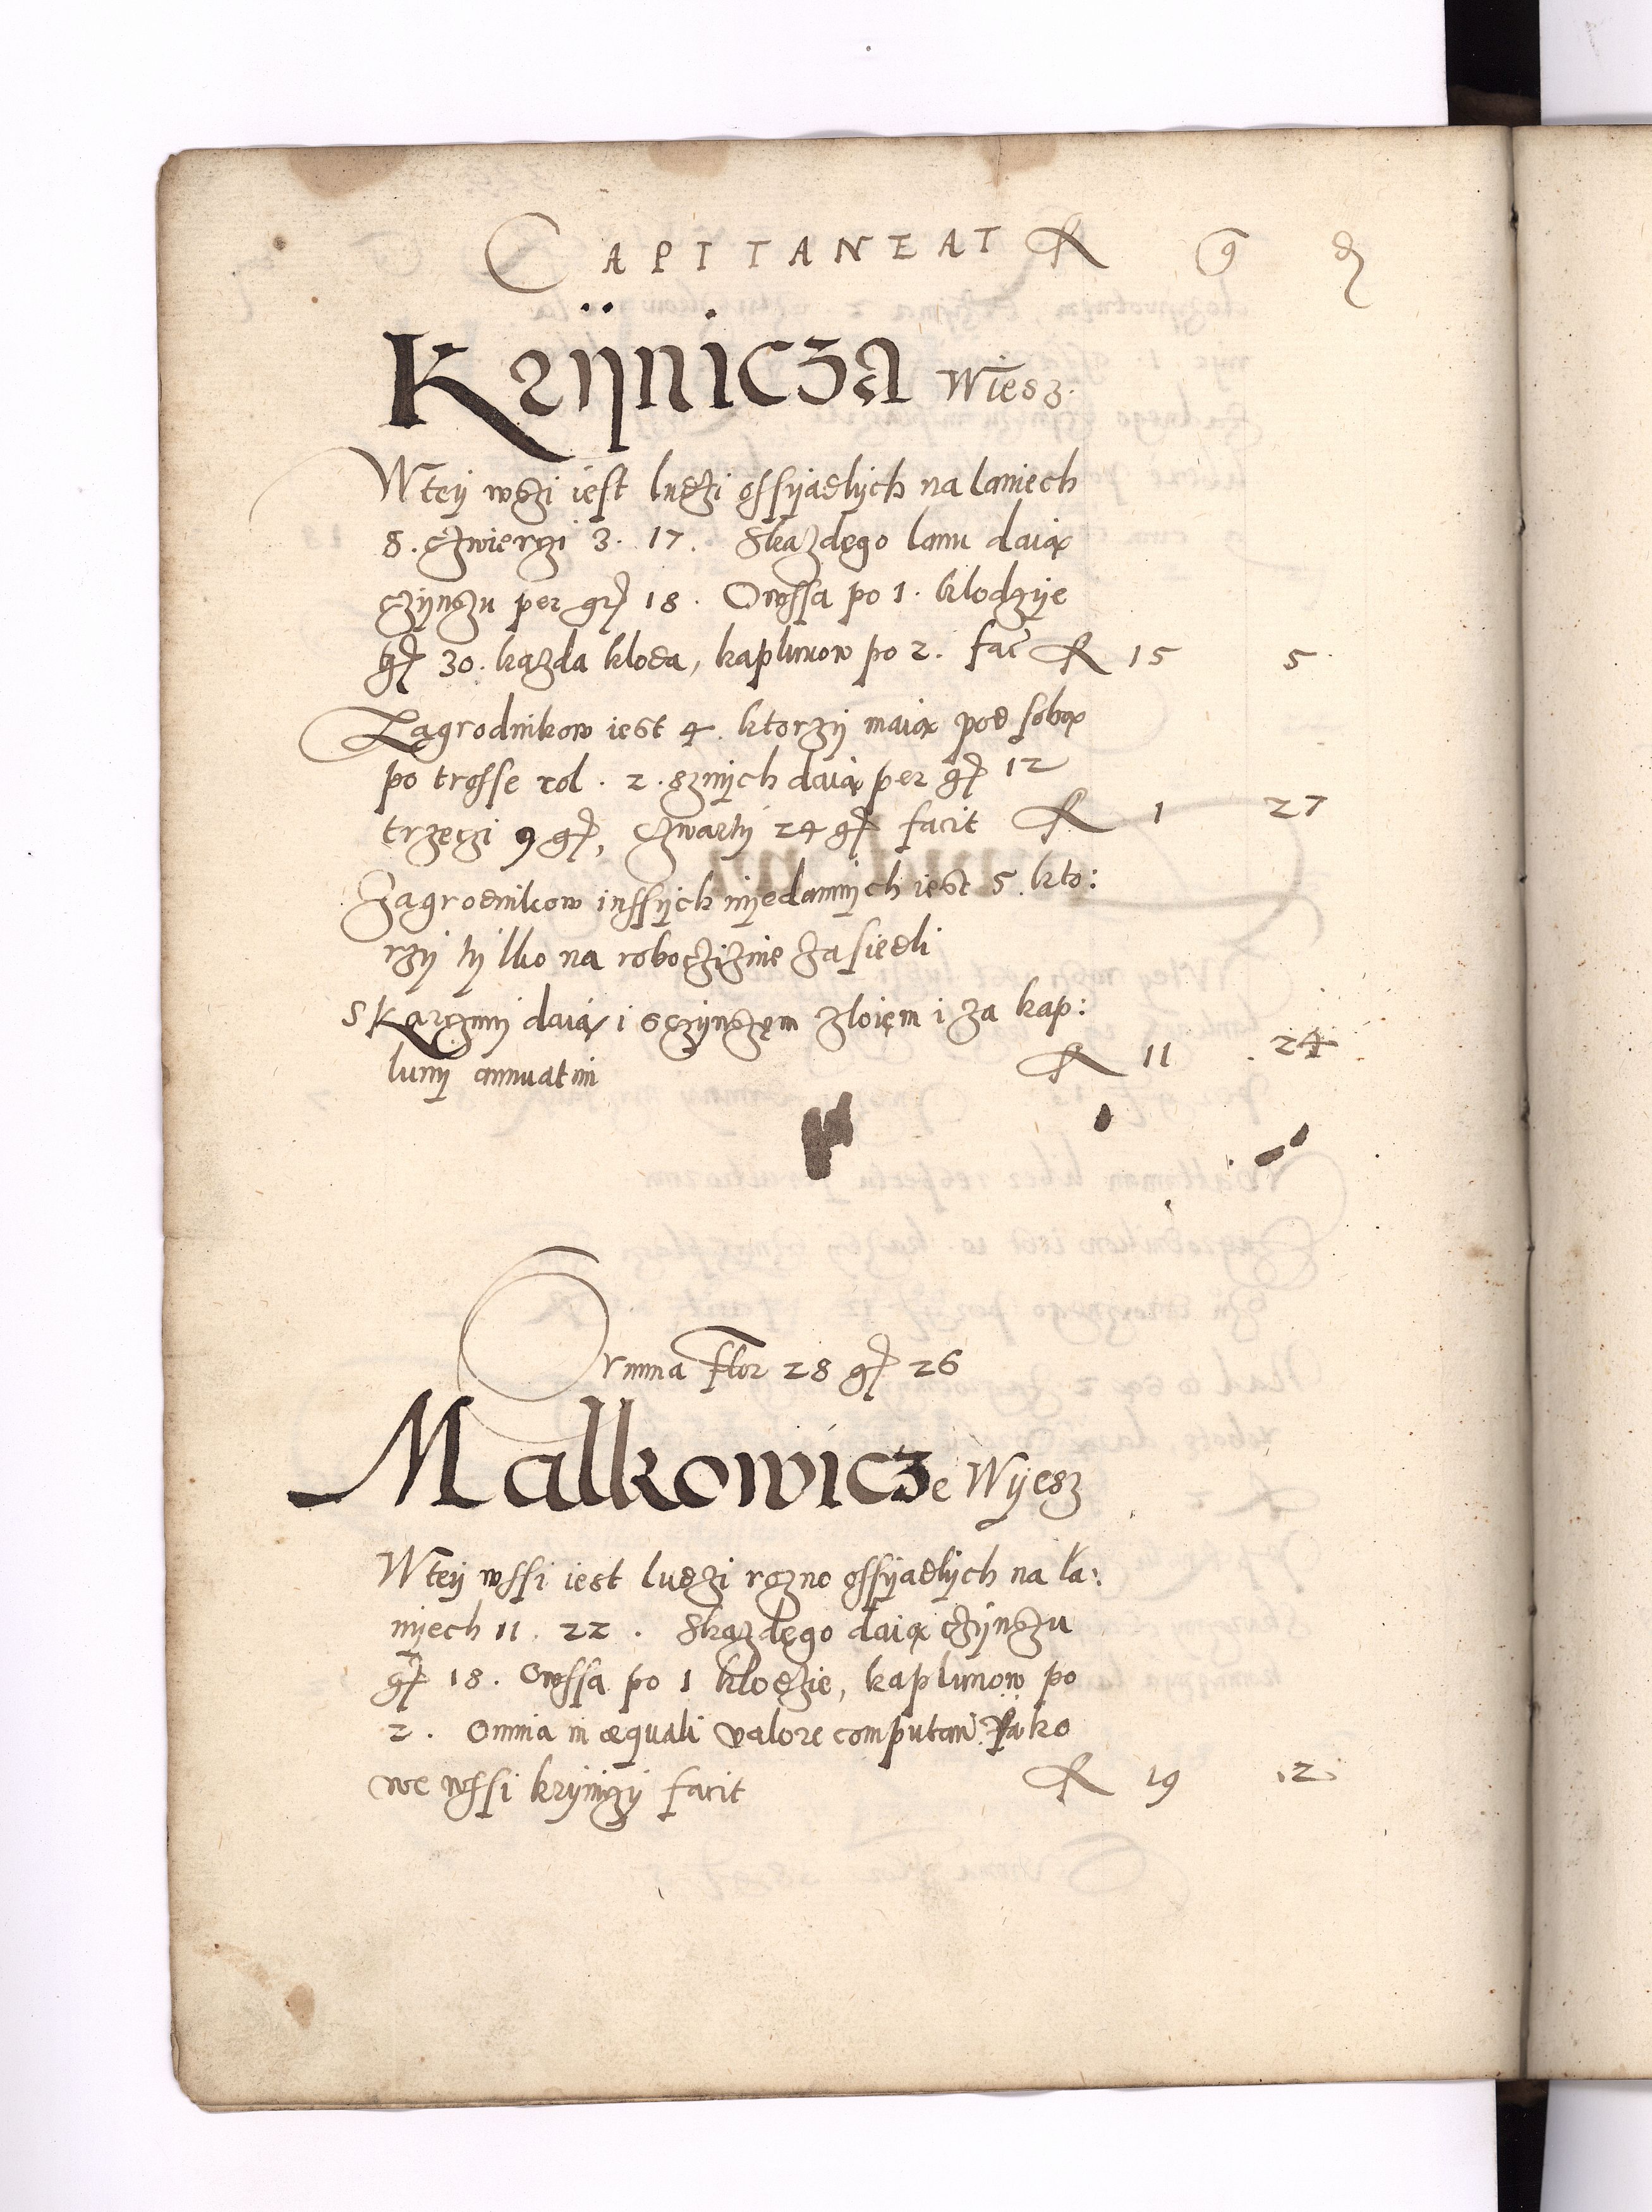 CAPITANEAT R g d
Krÿnicza Wiesz.
W teÿ wszi iest ludzi ossÿadlÿch na laniech
8. czwierczi 3. 17. Skazdego lanu daią
czÿnszu per gr 18. Owssa po 1. klodzÿe
gr 30. kazda kloda, kaplunow po 2. fac R 15 5
Zagrodnikow iest 4. ktorzÿ maią pod sobą
po trosse rol. 2. sznich daią per gr 12
trzeczi 9 gr, czwartÿ 24 gr facit R 1 27
Zagrodnikow inssÿch nÿedawnÿch iest 5. kto:
rzÿ tÿlko na robocziznie zasiedli
S Karczmÿ daią i sczÿnszem zloiem i za kap:
lunÿ annuatim R 11 24
Summa Flor 28 gr 26
Malkowicze Wÿesz
W teÿ wssi iest ludzi rozno ossÿadlÿch na la:
nÿech 11. 22. Skazdego daią czÿnszu
gr 18. Owssa po 1 klodzie, kaplunow po
2. Omnia in æquali valore computan. Jako
we wssi krÿniczÿ facit R 19 12